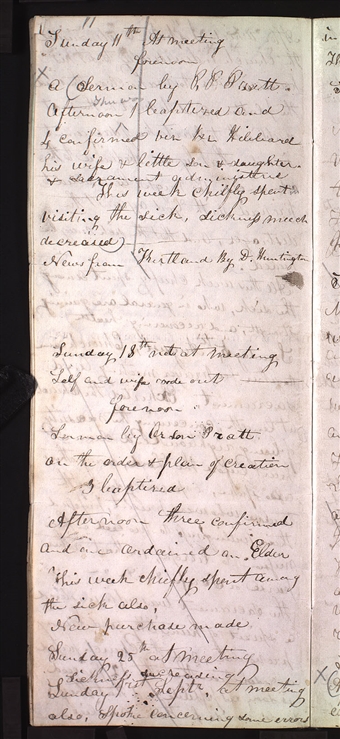 11
Sunday 11th At meeting
forenoon
a (Sermon by P. P. Pratt.
Afternoon 1 baptized and
4 confirmed viz br Hibbard
his wife & little son & daughter
& Sacrament administered
This week chiefly spent
visiting the sick, sickness much
decreased)
News from Kirtland By D. Huntington
Sunday 18th not at meeting
Self and wife rode out
forenoon
Sermon by Orson Pratt
on the order & plan of Creation
3 baptized
Afternoon three confirmed
and one ordained an Elder
This week chiefly spent among
the sick also,
New purchase made
Sunday 25th at meeting
Sickness decreasing
Sunday 1st Sept. At meeting
also, spoke concerning some errors